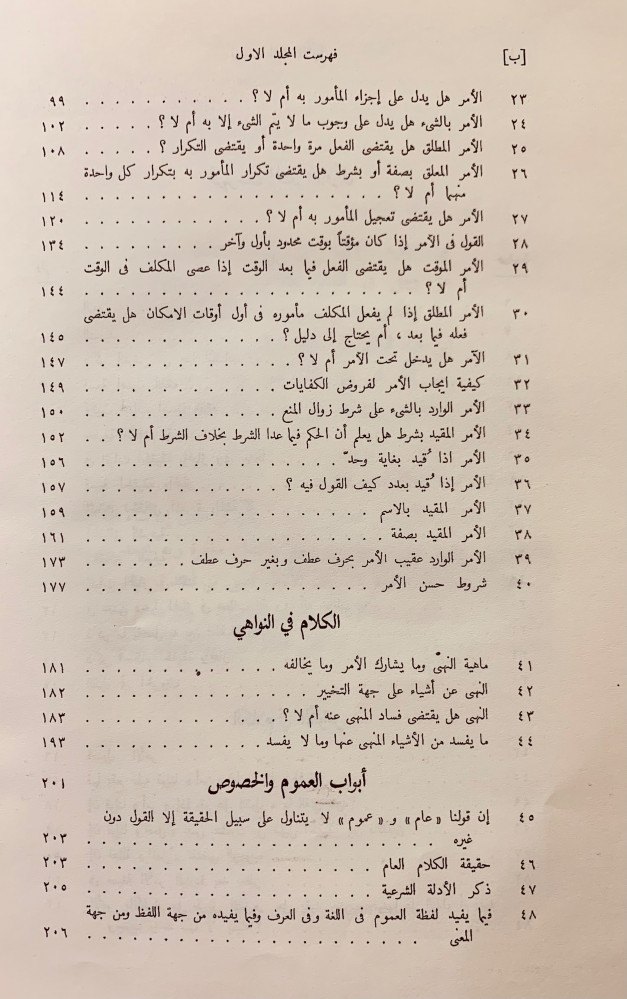 [ب] فهرست المجلد الاول
٢٣ الأمر هل يدل على إجزاء المأمور به أم لا ؟ . . . . . . . . . . . ٩٩
٢٤ الأمر بالشىء هل يدل على وجوب ما لا يتمّ الشىء إلا به أم لا ؟ . . . . . ١٠٢
٢٥ الأمر المطلق هل يقتضى الفعل مرة واحدة أو يقتضى التكرار ؟ . . . . . ١٠٨
٢٦ الأمر المعلق بصفة أو بشرط هل يقتضى تكرار المأمور به بتكرار كل واحدة
منهما أم لا ؟ . . . . . . . . . . . . . . . . . . ١١٤
٢٧ الأمر هل يقتضى تعجيل المأمور به أم لا ؟ . . . . . . . . . . . ١٢٠
٢٨ القول فى الأمر إذا كان مؤقتاً بوقت محدود بأول وآخر . . . . . . . . . ١٣٤
٢٩ الأمر الموقت هل يقتضى الفعل فيما بعد الوقت إذا عصى المكلف فى الوقت
أم لا ؟ . . . . . . . . . . . . . . . . . . ١٤٤
٣٠ الأمر المطلق إذا لم يفعل المكلف مأموره فى أول أوقات الامكان هل يقتضى
فعله فيما بعد ، أم يحتاج إلى دليل ؟ . . . . . . . . . . . . . ١٤٥
٣١ الآمر هل يدخل تحت الأمر أم لا ؟ . . . . . . . . . . . . . ١٤٧
٣٢ كيفية ايجاب الأمر لفروض الكفايات . . . . . . . . . . . . . ١٤٩
٣٣ الأمر الوارد بالشىء على شرط زوال المنع . . . . . . . . . . . . ١٥٠
٣٤ الأمر المقيد بشرط هل يعلم أن الحكم فيما عدا الشرط بخلاف الشرط أم لا ؟ . . ١٥٢
٣٥ الأمر اذا قُيد بغاية وحدّ . . . . . . . . . . . . . . . . ١٥٦
٣٦ الأمر إذا قُيد بعدد كيف القول فيه ؟ . . . . . . . . . . . . . ١٥٧
٣٧ الأمر المقيد بالاسم . . . . . . . . . . . . . . . . . ١٥٩
٣٨ الأمر المقيد بصفة . . . . . . . . . . . . . . . . . ١٦١
٣٩ الأمر الوارد عقيب الأمر بحرف عطف وبغير حرف عطف . . . . . . . ١٧٣
٤٠ شروط حسن الأمر . . . . . . . . . . . . . . . . . ١٧٧
الكلام في النواهي
٤١ ماهية النهىّ وما يشارك الأمر وما يخالفه . . . . . . . . . . . . ١٨١
٤٢ النهى عن أشياء على جهة التخيير . . . . . . . . . . . . . . ١٨٢
٤٣ النهى هل يقتضى فساد المنهى عنه أم لا ؟ . . . . . . . . . . . . ١٨٣
٤٤ ما يفسد من الأشياء المنهى عنها وما لا يفسد . . . . . . . . . . . ١٩٣
أبواب العموم والخصوص ٢٠١
٤٥ إن قولنا «عام» و «عموم» لا يتناول على سبيل الحقيقة إلا القول دون
غيره . . . . . . . . . . . . . . . . . . . ٢٠٣
٤٦ حقيقة الكلام العام . . . . . . . . . . . . . . . . . ٢٠٣
٤٧ ذكر الأدلة الشرعية . . . . . . . . . . . . . . . . . ٢٠٥
٤٨ فيما يفيد لفظة العموم فى اللغة وفى العرف وفيما يفيده من جهة اللفظ ومن جهة
المعنى . . . . . . . . . . . . . . . . . . ٢٠٦